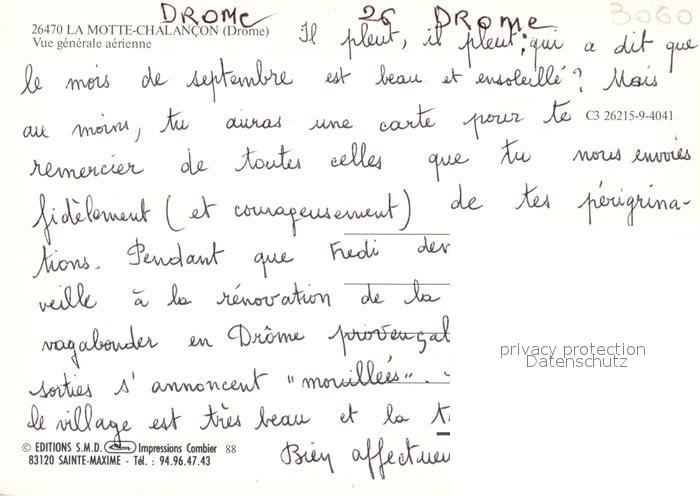 DROME 26 DROME 3060
26470 LA MOTTE-CHALANÇON (Drôme)
Vue générale aérienne
Il pleut, il pleut; qui a dit que
le mois de septembre est beau et ensoleillé? Mais
au moins, tu auras une carte pour te
C3 26215-9-4041
remercier de toutes celles que tu nous envoies
fidèlement (et courageusement) de tes pérégrina-
tions. Pendant que Fredi der
veille à la rénovation de la
vagabonder en Drôme provençal
sorties s'annoncent "mouillées".
le village est très beau et la
Bien affectueu
privacy protection
Datenschutz
© EDITIONS S.M.D. Impressions Combier 88
83120 SAINTE-MAXIME - Tél. : 94.96.47.43